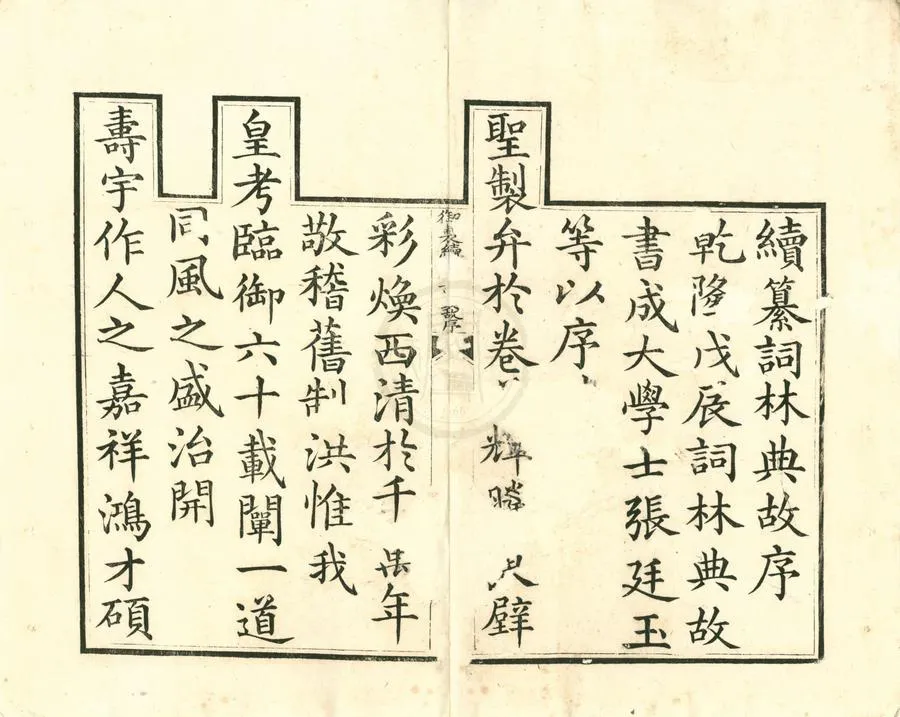 續纂詞林典故序
乾隆戊辰詞林典故
書成大學士張廷玉
等以序
聖製弁於卷輝璧
彩煥西清於千年
敬稽舊制洪惟我
皇考臨御六十載闡一道
同風之盛治開
壽宇作人之嘉祥鴻才碩